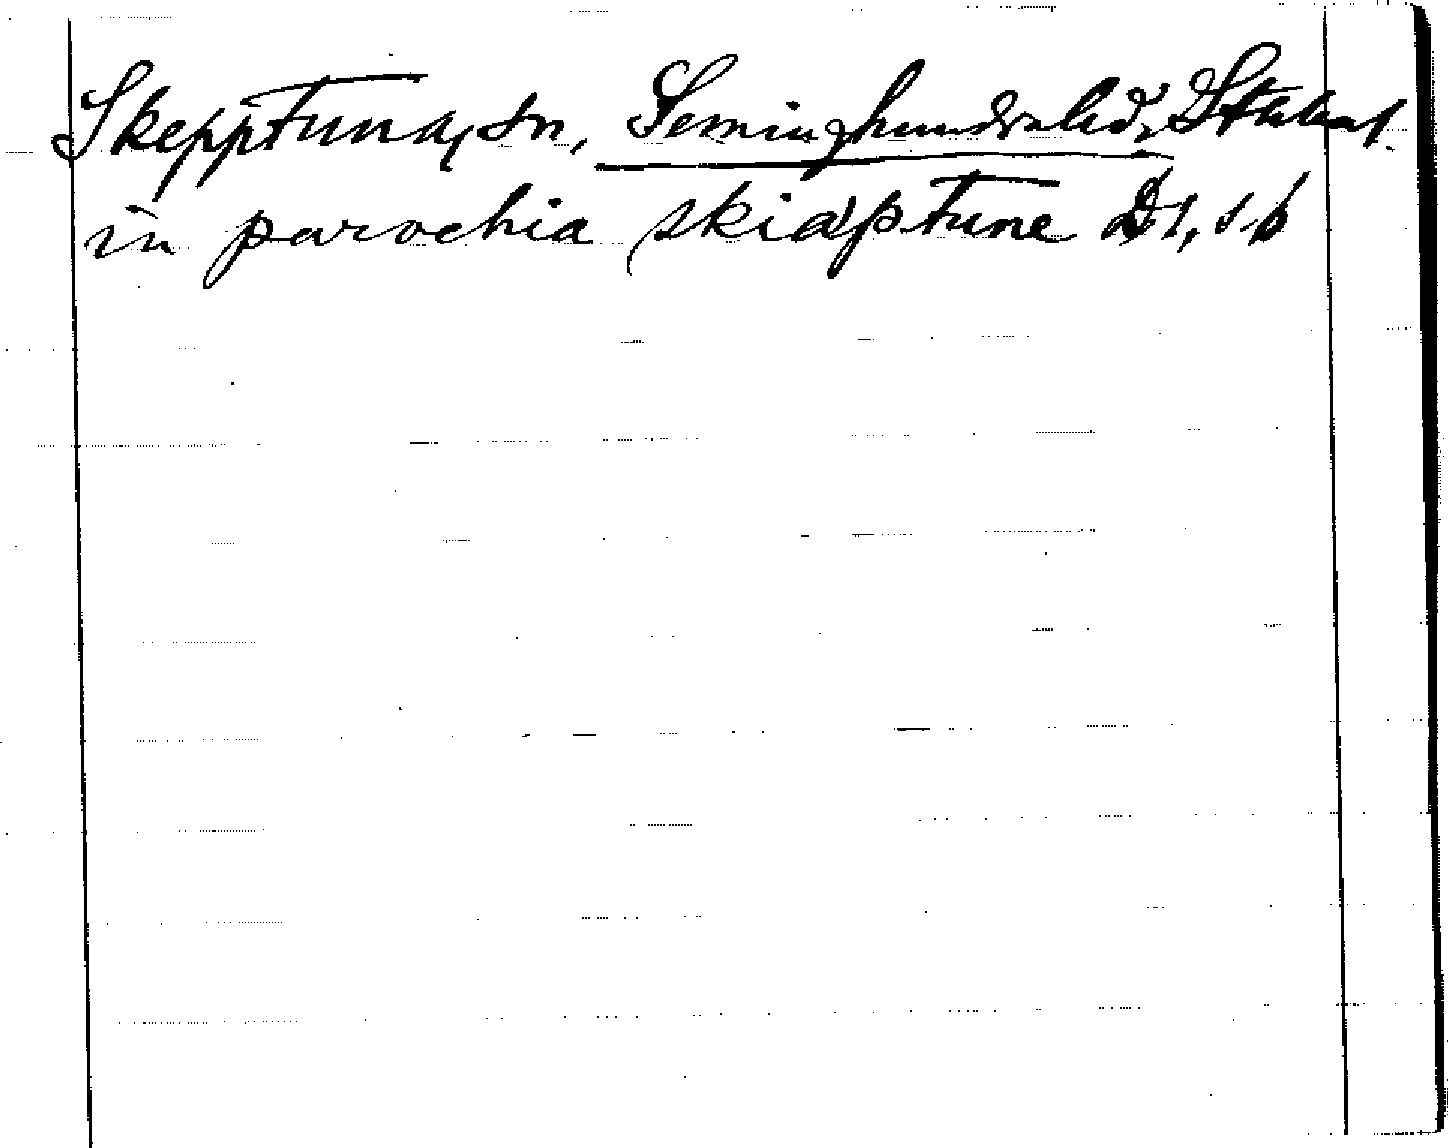 Skepptuna, sn, Seminghundra hd, Sthlms l.
in parochia skiæptune D1, s 6